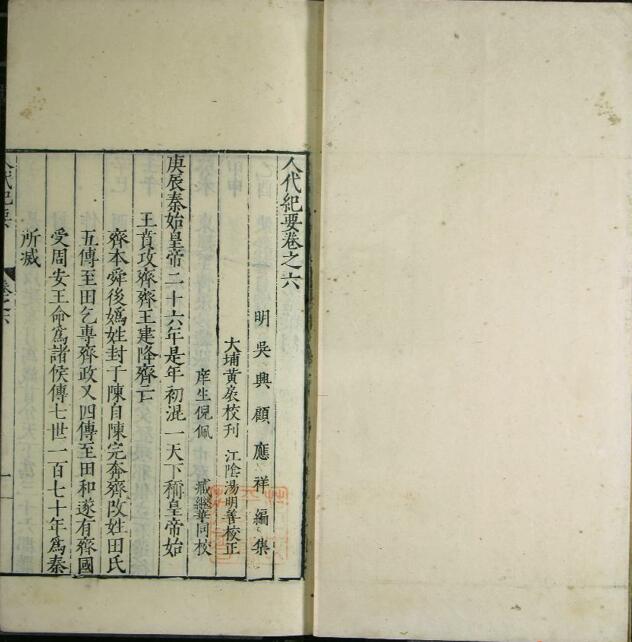 人代紀要卷之六
明吳興顧應祥編集
大埔黃扆校刋 江陰湯明善校正
庠生倪佩 臧繼華同校
庚辰秦始皇帝二十六年是年初混一天下稱皇帝始
王賁攻齊齊王建降齊亡
齊本舜後嬀姓封于陳自陳完奔齊改姓田氏
五傳至田乞專齊政又四傳至田和遂有齊國
受周安王命爲諸侯傳七世一百七十年爲秦
所滅
人代紀要 卷之六 一